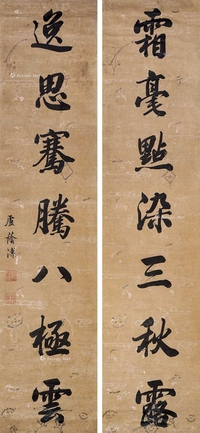 霜毫點染三秋露
逸思騫騰八極雲
盧蔭溥